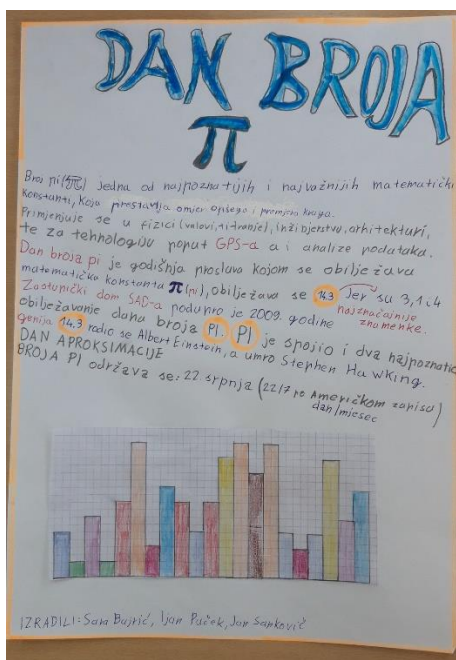 DAN BROJA
π
Broj pi(π) jedna od najpoznatijih i najvažnijih matematički
konstanti, koja prestavlja omjer opsega i promjera kruga.
Primjenjuje se u fizici (valovi, titranje), inžinjerstvu, arhitekturi,
te za tehnologiju poput GPS-a a i analize podataka.
Dan broja pi je godišnja proslava kojom se obilježava
matematička konstanta π(pi), obilježava se 14.3 Jer su 3,1 i 4
Zastupnički dom SAD-a podupro je 2009. godine najznačajnije
obilježavanje dana broja PI. PI je spojio i dva najpoznatij znamenke.
genija 14.3 rodio se Albert Einstein, a umro Stephen Hawking.
DAN APROKSIMACIJE
BROJA PI održava se: 22. srpnja (22/7 po Američkom zapisu)
dan/mjesec
IZRADILI: Sara Bajrić, Ijan Puček, Jan Sanković